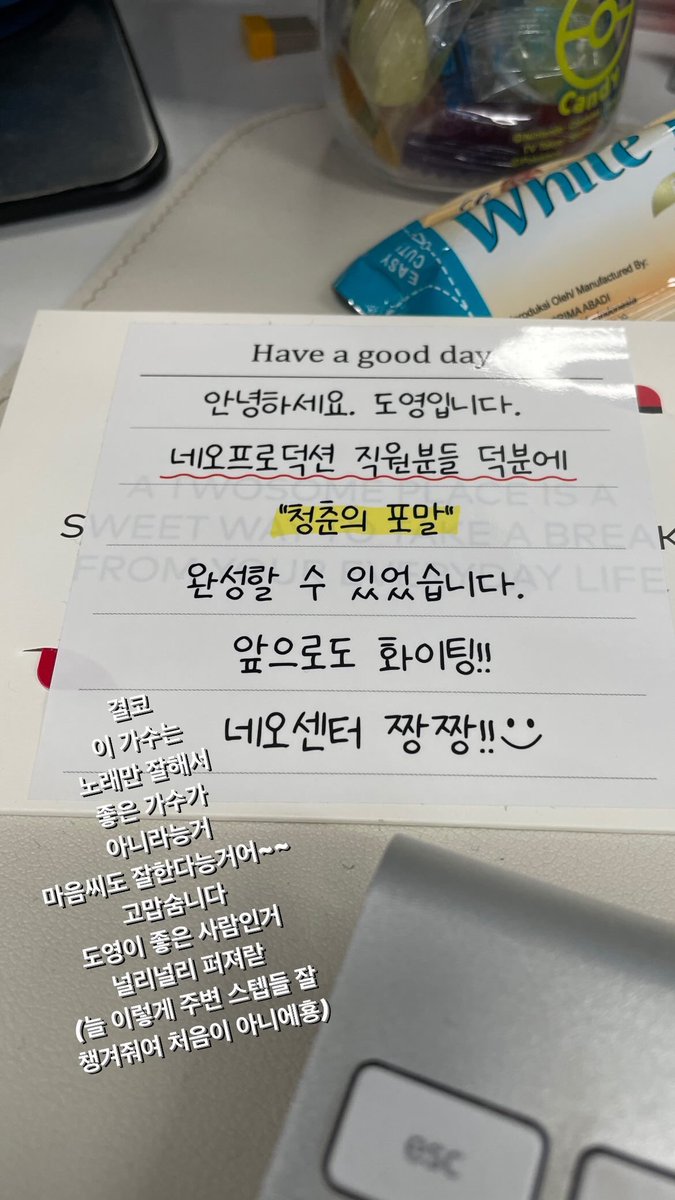 Candy
©Nintendo
TV Tokyo
White
EASY
CUT!
Produksi Oleh/ Manufactured By:
ABADI
Indonesia
Have a good day
안녕하세요. 도영입니다.
네오프로덕션 직원분들 덕분에
A TWOSOME PLACE IS A
"청춘의 포말"
SWEET WAY TO TAKE A BREAK
완성할 수 있었습니다.
FROM YOUR EVERYDAY LIFE
앞으로도 화이팅!!
네오센터 짱짱!!
결코
이 가수는
노래만 잘해서
좋은 가수가
아니라능거
마음씨도 잘한다능거어~~
고맙숨니다
도영이 좋은 사람인거
널리널리 퍼져랃
(늘 이렇게 주번 스텝들 잘
챙겨줘여 처음이 아니에횽)
esc